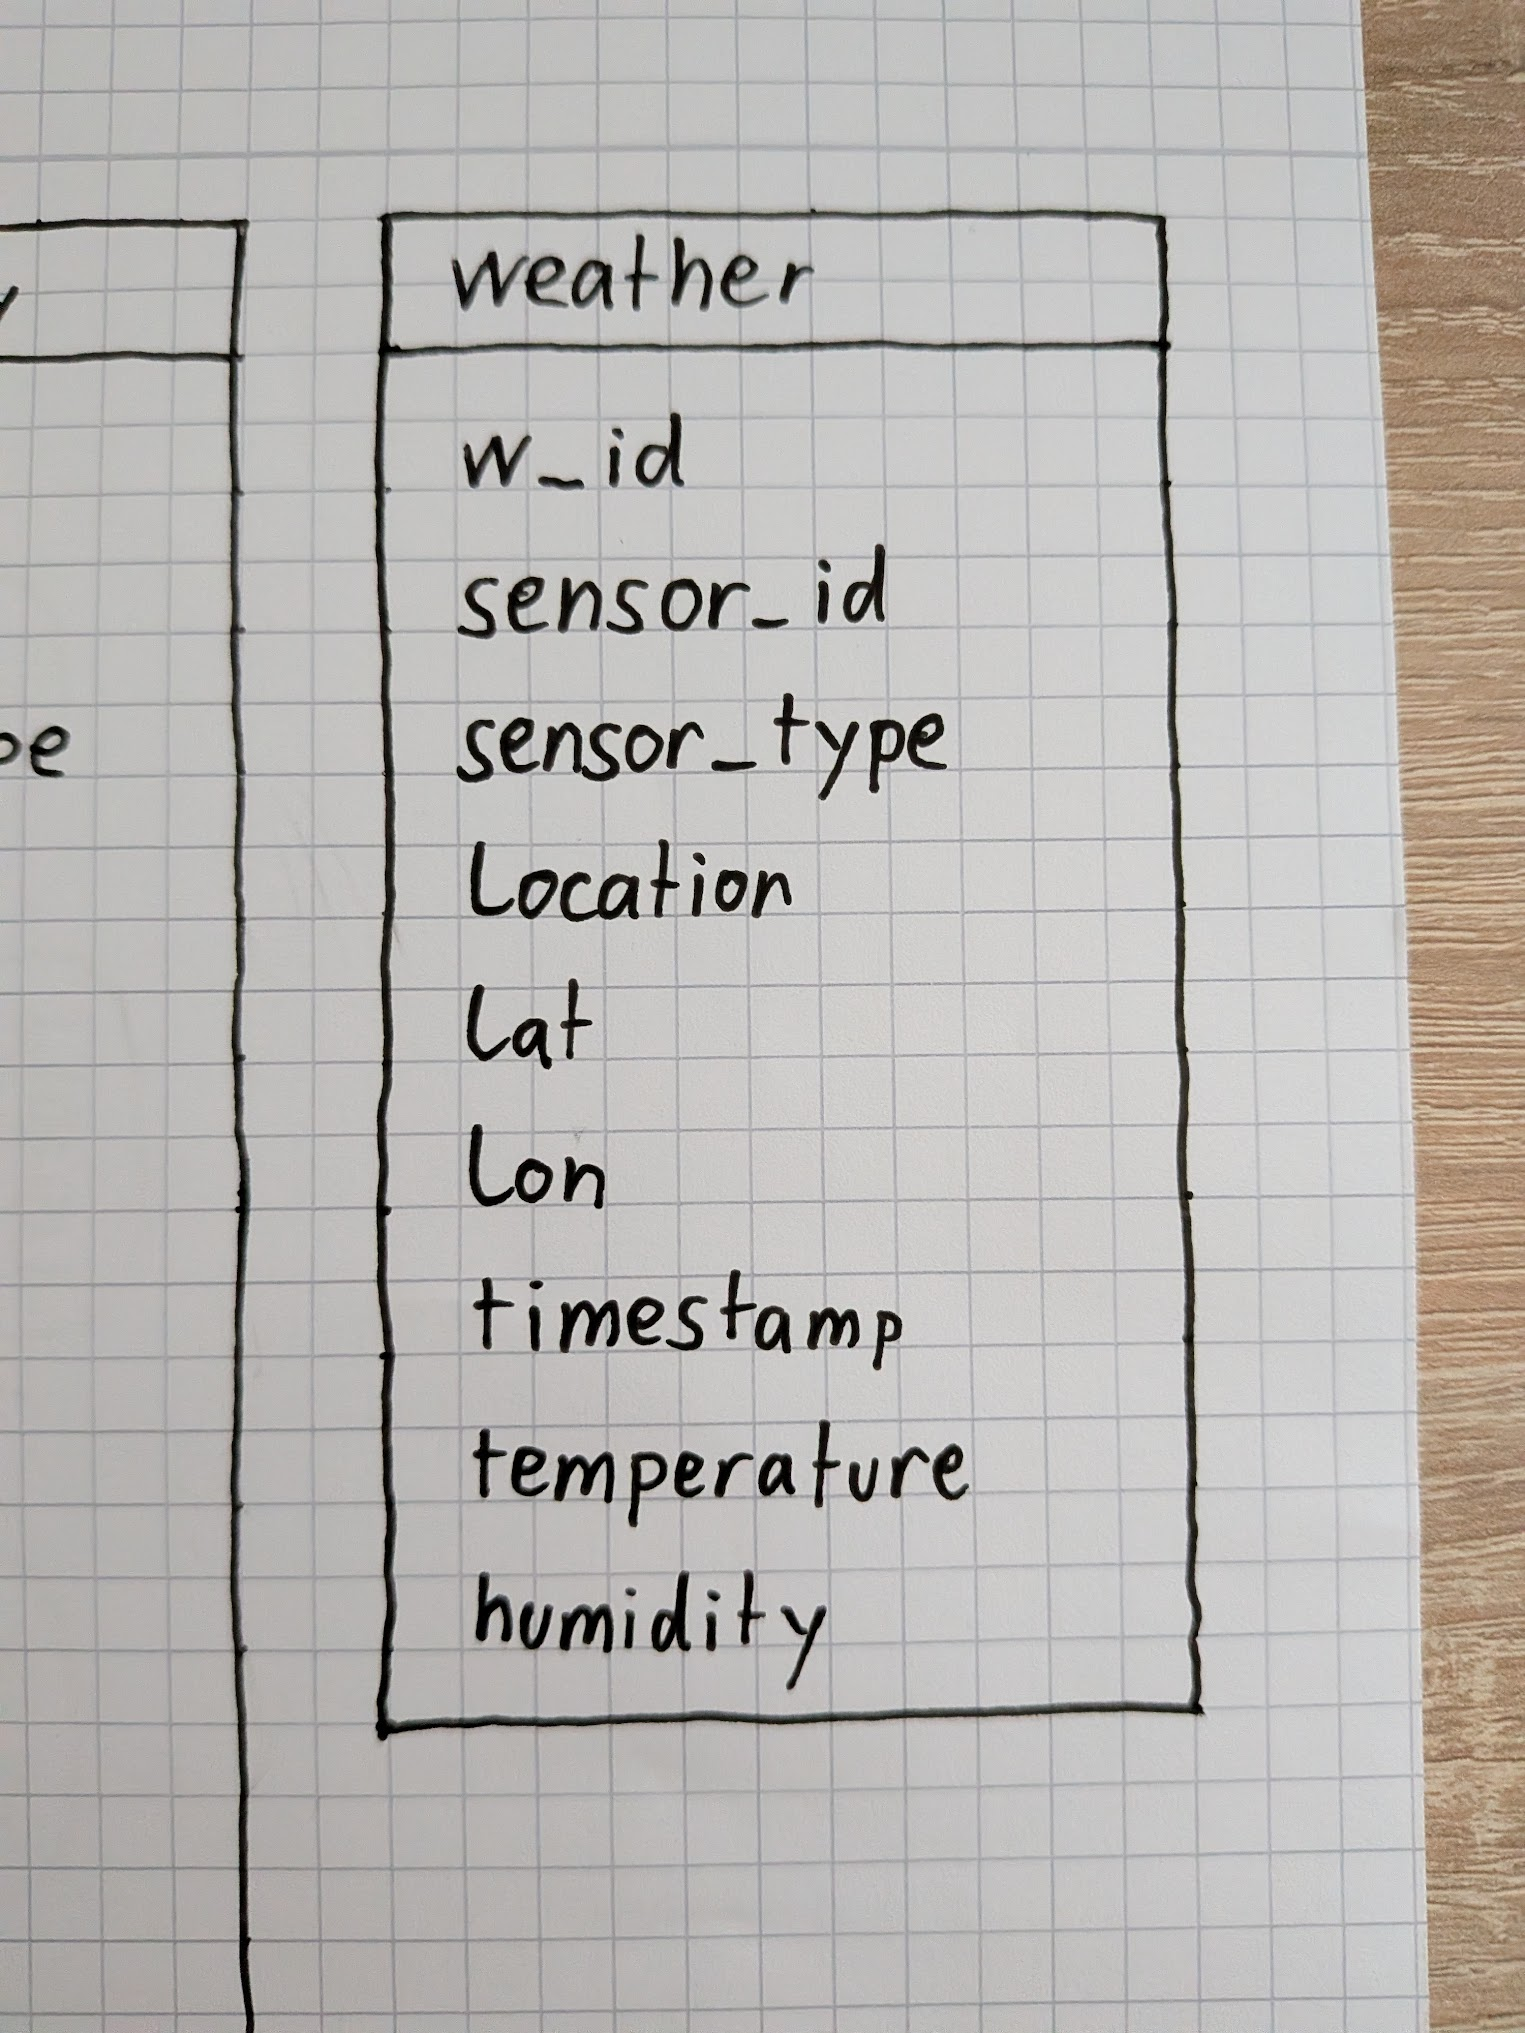 weather
w_id
sensor_id
sensor_type
location
lat
lon
timestamp
temperature
humidity